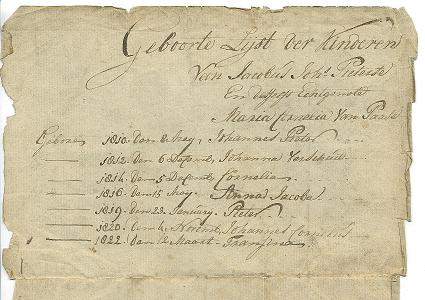 Geboorte Lijst der Kinderen
Van Jacobus Joh.s Pieterse
En desself Echtgenote
Maria Cornelia Van
Geboren 1810. Den 8 Meij, Johannes Pieter
1812. Den 6 Desemb, Johanna
1814. Den 5 Desemb, Cornelia
1816. Den 15 Meij. Anna Jacoba
1819. Den 23 January. Pieter
1820. Den Novemb, Johannes
1822. Den 12 Maart